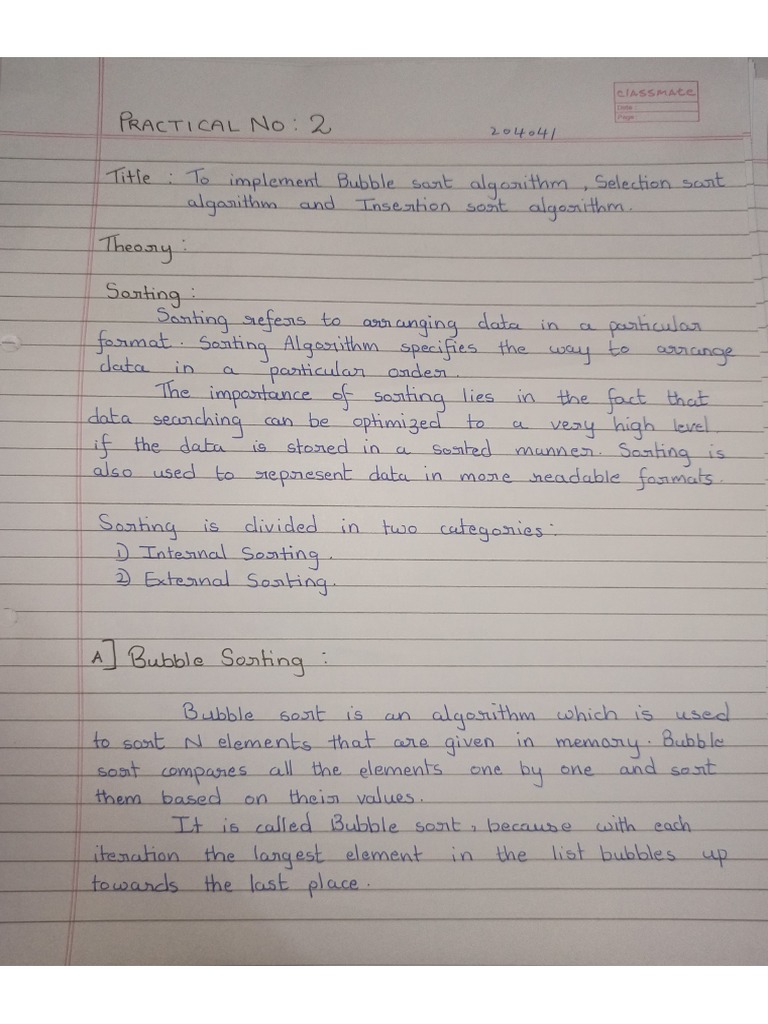 classmate
Date :
Page :
PRACTICAL NO: 2
204041
Title : To implement Bubble sort algorithm, Selection sort
algorithm and Insertion sort algorithm.
Theory :
Sorting :
Sorting refers to arranging data in a particular
format. Sorting Algorithm specifies the way to arrange
data in a particular order.
The importance of sorting lies in the fact that
data searching can be optimized to a very high level
if the data is stored in a sorted manner. Sorting is
also used to represent data in more readable formats.
Sorting is divided in two categories:
1) Internal Sorting.
2) External Sorting.
A] Bubble Sorting :
Bubble sort is an algorithm which is used
to sort N elements that are given in memory. Bubble
sort compares all the elements one by one and sort
them based on their values.
It is called Bubble sort, because with each
iteration the largest element in the list bubbles up
towards the last place.